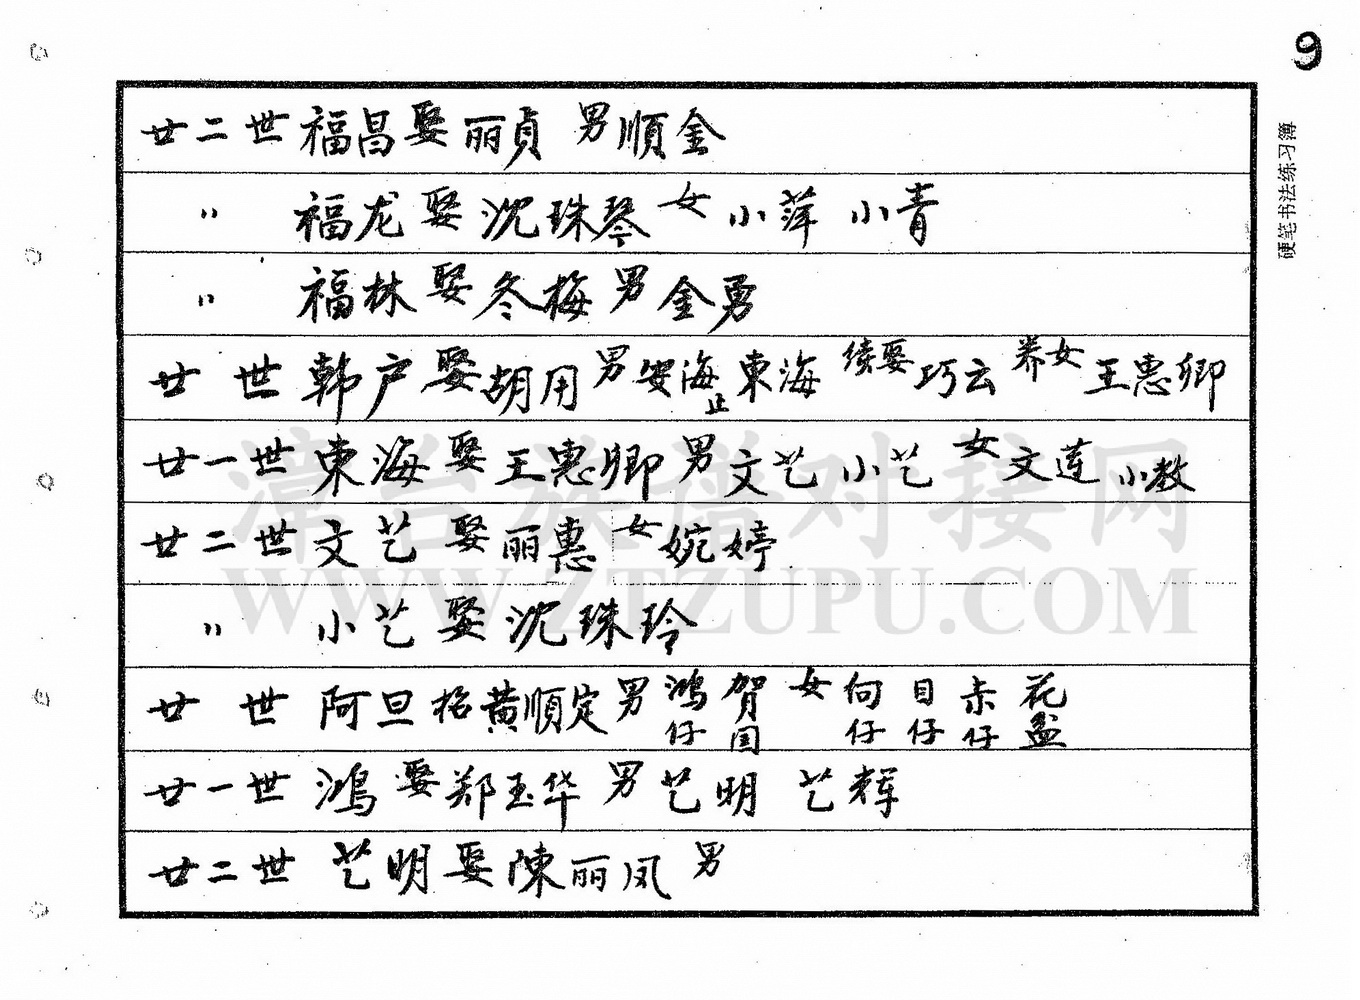 9
硬笔书法练习簿
廿二世 福昌娶丽貞 男順金
〃 福龙娶沈珠琴 女小萍 小青
〃 福林娶冬梅 男金勇
廿世 韩户娶胡用 男安海止 東海 续娶巧云 养女王惠卿
廿一世 東海娶王惠卿 男文艺 小艺 女文莲 小教
廿二世 文艺娶丽惠 女婉婷
〃 小艺娶沈珠玲
廿世 阿旦招黄順定 男鸿仔 贺国 女向仔 目仔 赤仔 花盆
廿一世 鸿娶郑玉华 男艺明 艺辉
廿二世 艺明娶陳丽凤 男
漳台族谱对接网
WWW.ZTZUPU.COM